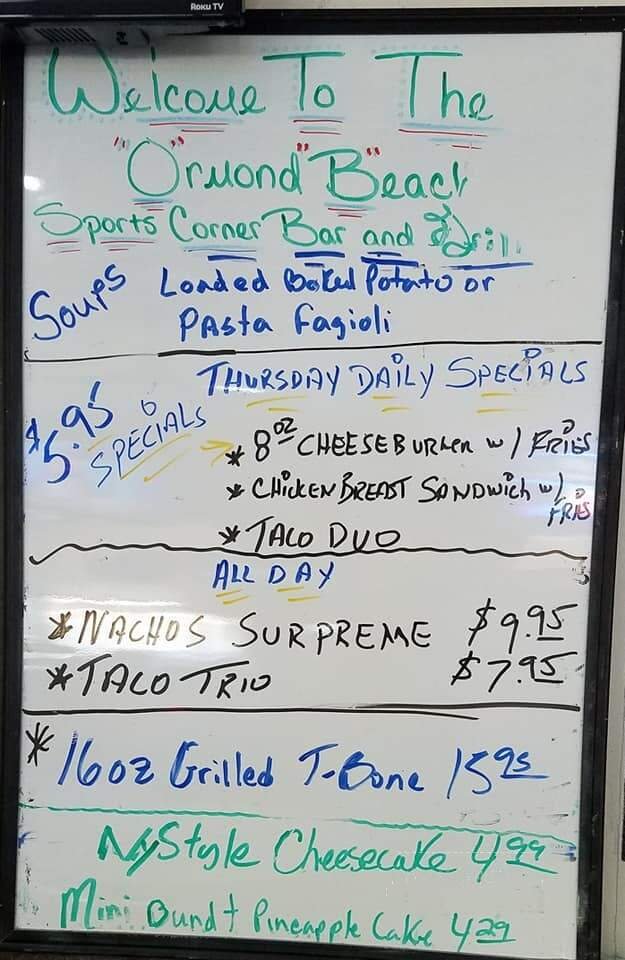 Roku TV
Welcome To The
"O"rmond "B"each
Sports Corner Bar and Grill
Soups Loaded Baked Potato or
Pasta Fagioli
THURSDAY DAILY SPECIALS
$5.95 SPECIALS
* 8oz CHEESEBURGER w/ FRIES
* CHICKEN BREAST SANDWICH w/ FRIES
* TACO DUO
ALL DAY
* NACHOS SURPREME $9.95
* TACO TRIO $7.95
* 16oz Grilled T-Bone 15 95
NyStyle Cheesecake 4 99
Mini Bundt Pineapple Cake 4 29